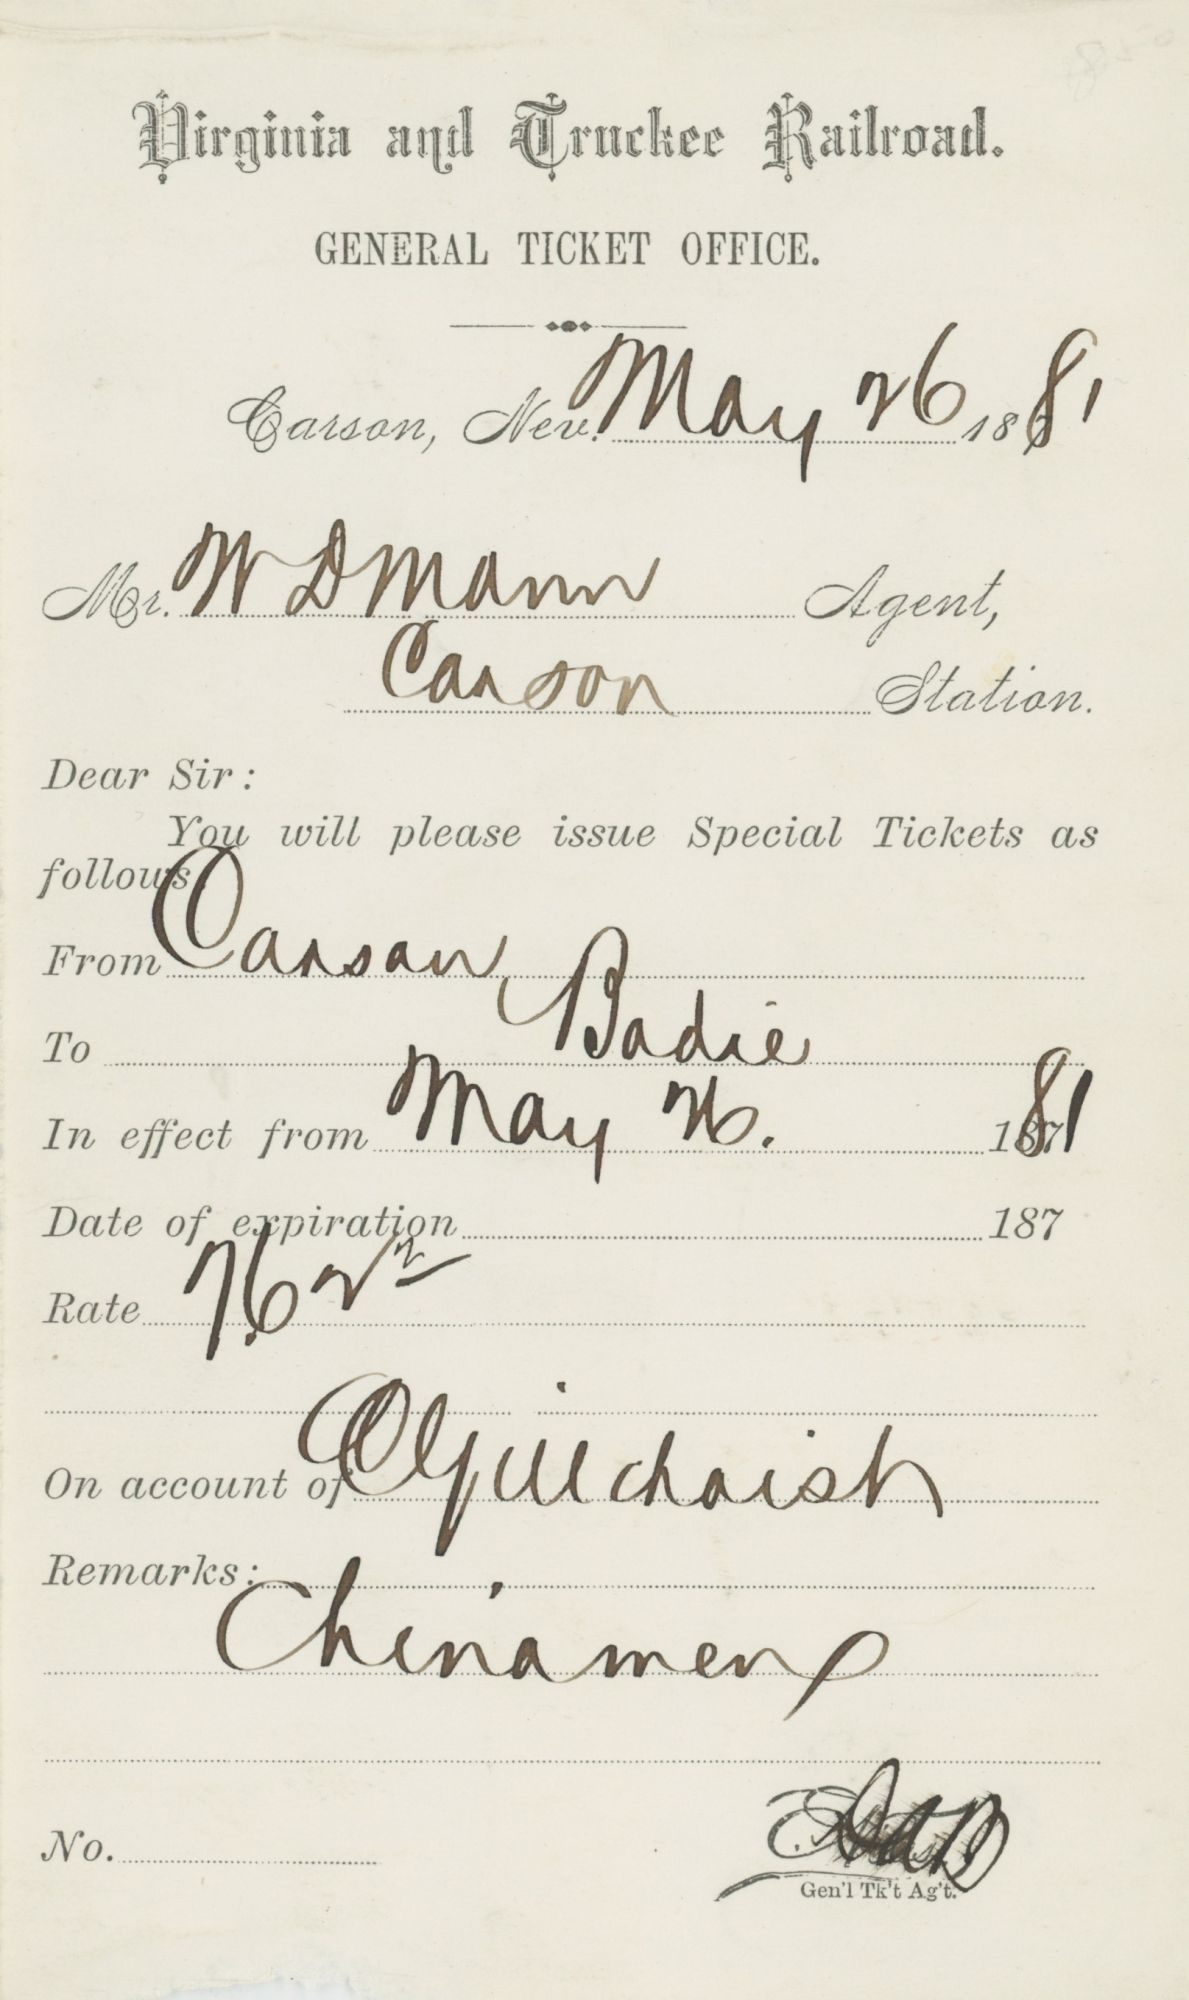 Virginia and Truckee Railroad.
GENERAL TICKET OFFICE.
Carson, Nev. May 26 1881
Mr. W D Mann Agent,
Carson Station.
Dear Sir:
You will please issue Special Tickets as
follows
From Carson
To Bodie
In effect from May 26. 1881
Date of expiration 187
Rate
On account of Gillchrist
Remarks:
Chinamen
No.
Gen'l Tk't Ag't.